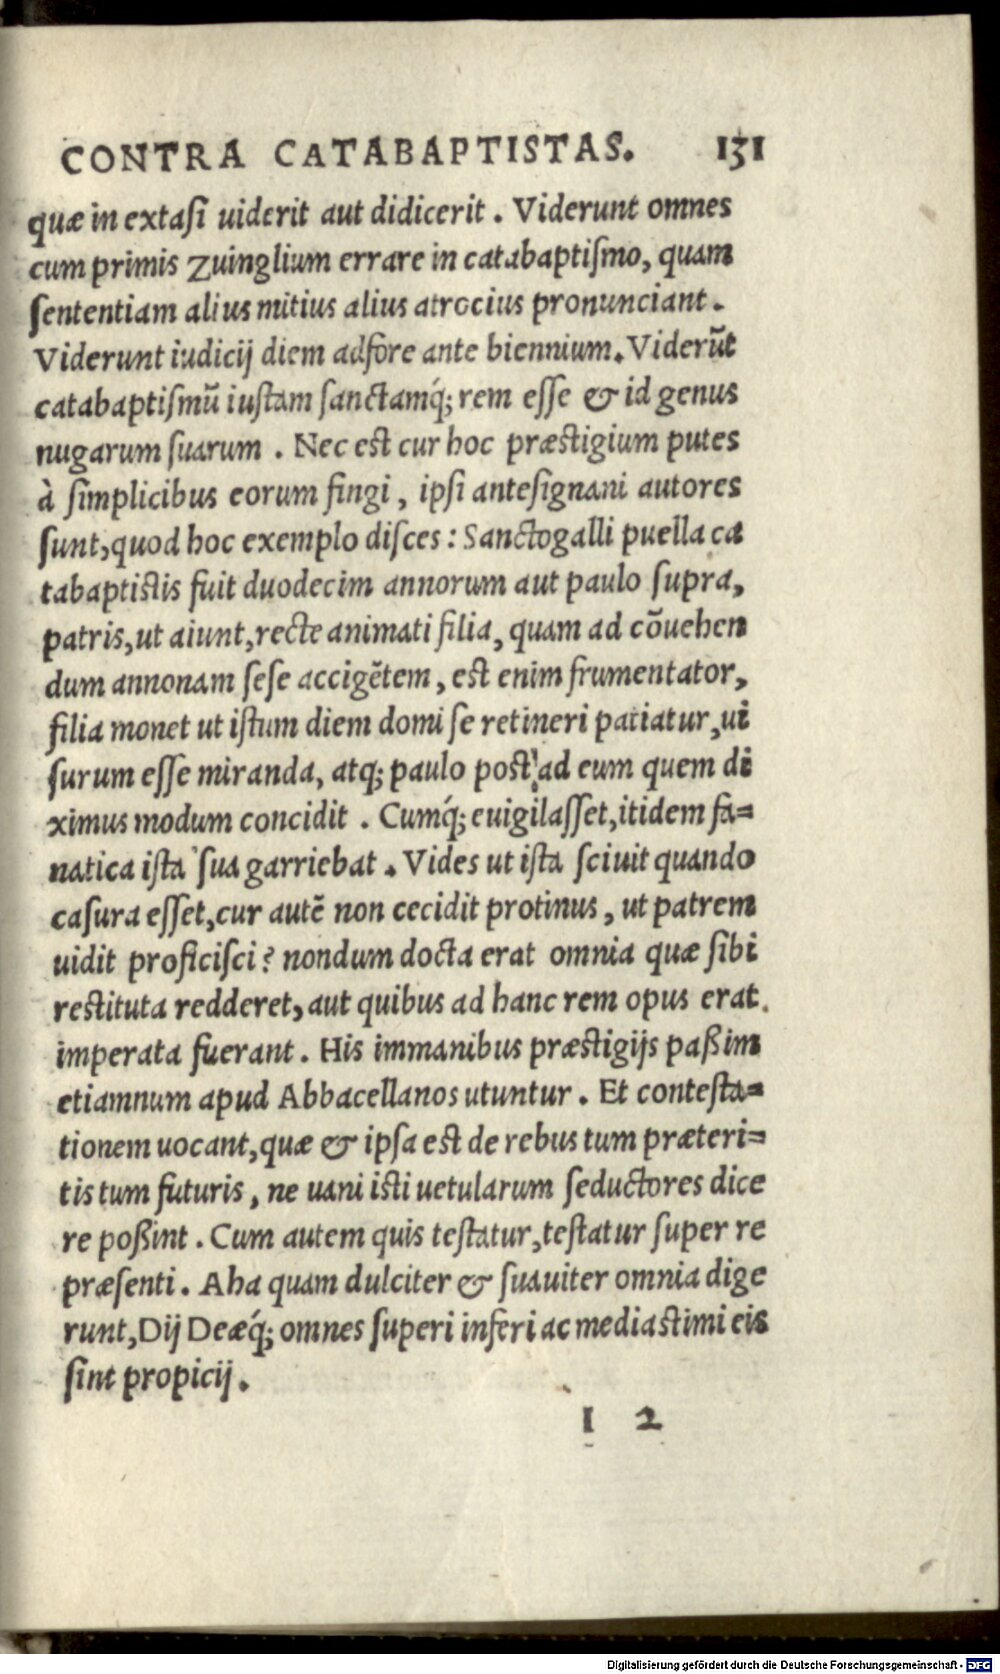 CONTRA CATABAPTISTAS. 131
quæ in extasi uiderit aut didicerit. Viderunt omnes
cum primis Zuinglium errare in catabaptismo, quam
sententiam alius mitius alius atrocius pronunciant.
Viderunt iudicij diem adfore ante biennium. Viderūt
catabaptismū iustam sanctamq́; rem esse & id genus
nugarum suarum. Nec est cur hoc præstigium putes
à simplicibus eorum fingi, ipsi antesignani autores
sunt, quod hoc exemplo disces: Sanctogalli puella ca
tabaptistis fuit duodecim annorum aut paulo supra,
patris, ut aiunt, recte animati filia, quam ad cōuehen
dum annonam sese accigētem, est enim frumentator,
filia monet ut istum diem domi se retineri patiatur, ui
surum esse miranda, atq; paulo post ad eum quem di
ximus modum concidit. Cumq́; euigilasset, itidem fa=
natica ista sua garriebat. Vides ut ista sciuit quando
casura esset, cur autē non cecidit protinus, ut patrem
uidit proficisci? nondum docta erat omnia quæ sibi
restituta redderet, aut quibus ad hanc rem opus erat.
imperata fuerant. His immanibus præstigijs paßim
etiamnum apud Abbacellanos utuntur. Et contesta=
tionem uocant, quæ & ipsa est de rebus tum præteri=
tis tum futuris, ne uani isti uetularum seductores dice
re poßint. Cum autem quis testatur, testatur super re
præsenti. Aha quam dulciter & suauiter omnia dige
runt, Dij Deæq́; omnes superi inferi ac mediastimi eis
sint propicij.
I 2
Digitalisierung gefördert durch die Deutsche Forschungsgemeinschaft - DFG